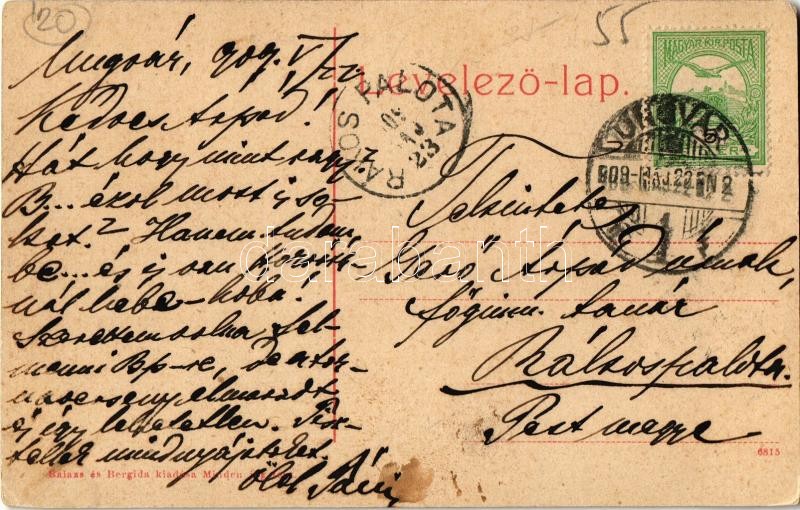 20
55
Levelező-lap.
MAGYAR KIR. POSTA
RÁKOS PALOTA
23
UNGVÁR
909 MÁJ 22
Ungvár, 909. V/22.
Kedves Árpád!
Hát hogy mint vagy?
B... ékol most is so-
kat? Hanem tudom
be... és is van
nál hébe-hóba!
Szerettem volna fel-
menni Bp-re, de a tor-
naverseny elmaradt
és így lehetetlen. Tisz-
tellek mindnyájotokat.
Ölel
Tekintetes
Jenő Árpád úrnak,
főgimn. tanár
Rákospalota.
Pest megye
darabanth
Balázs és Bergida kiadása Minden
6815